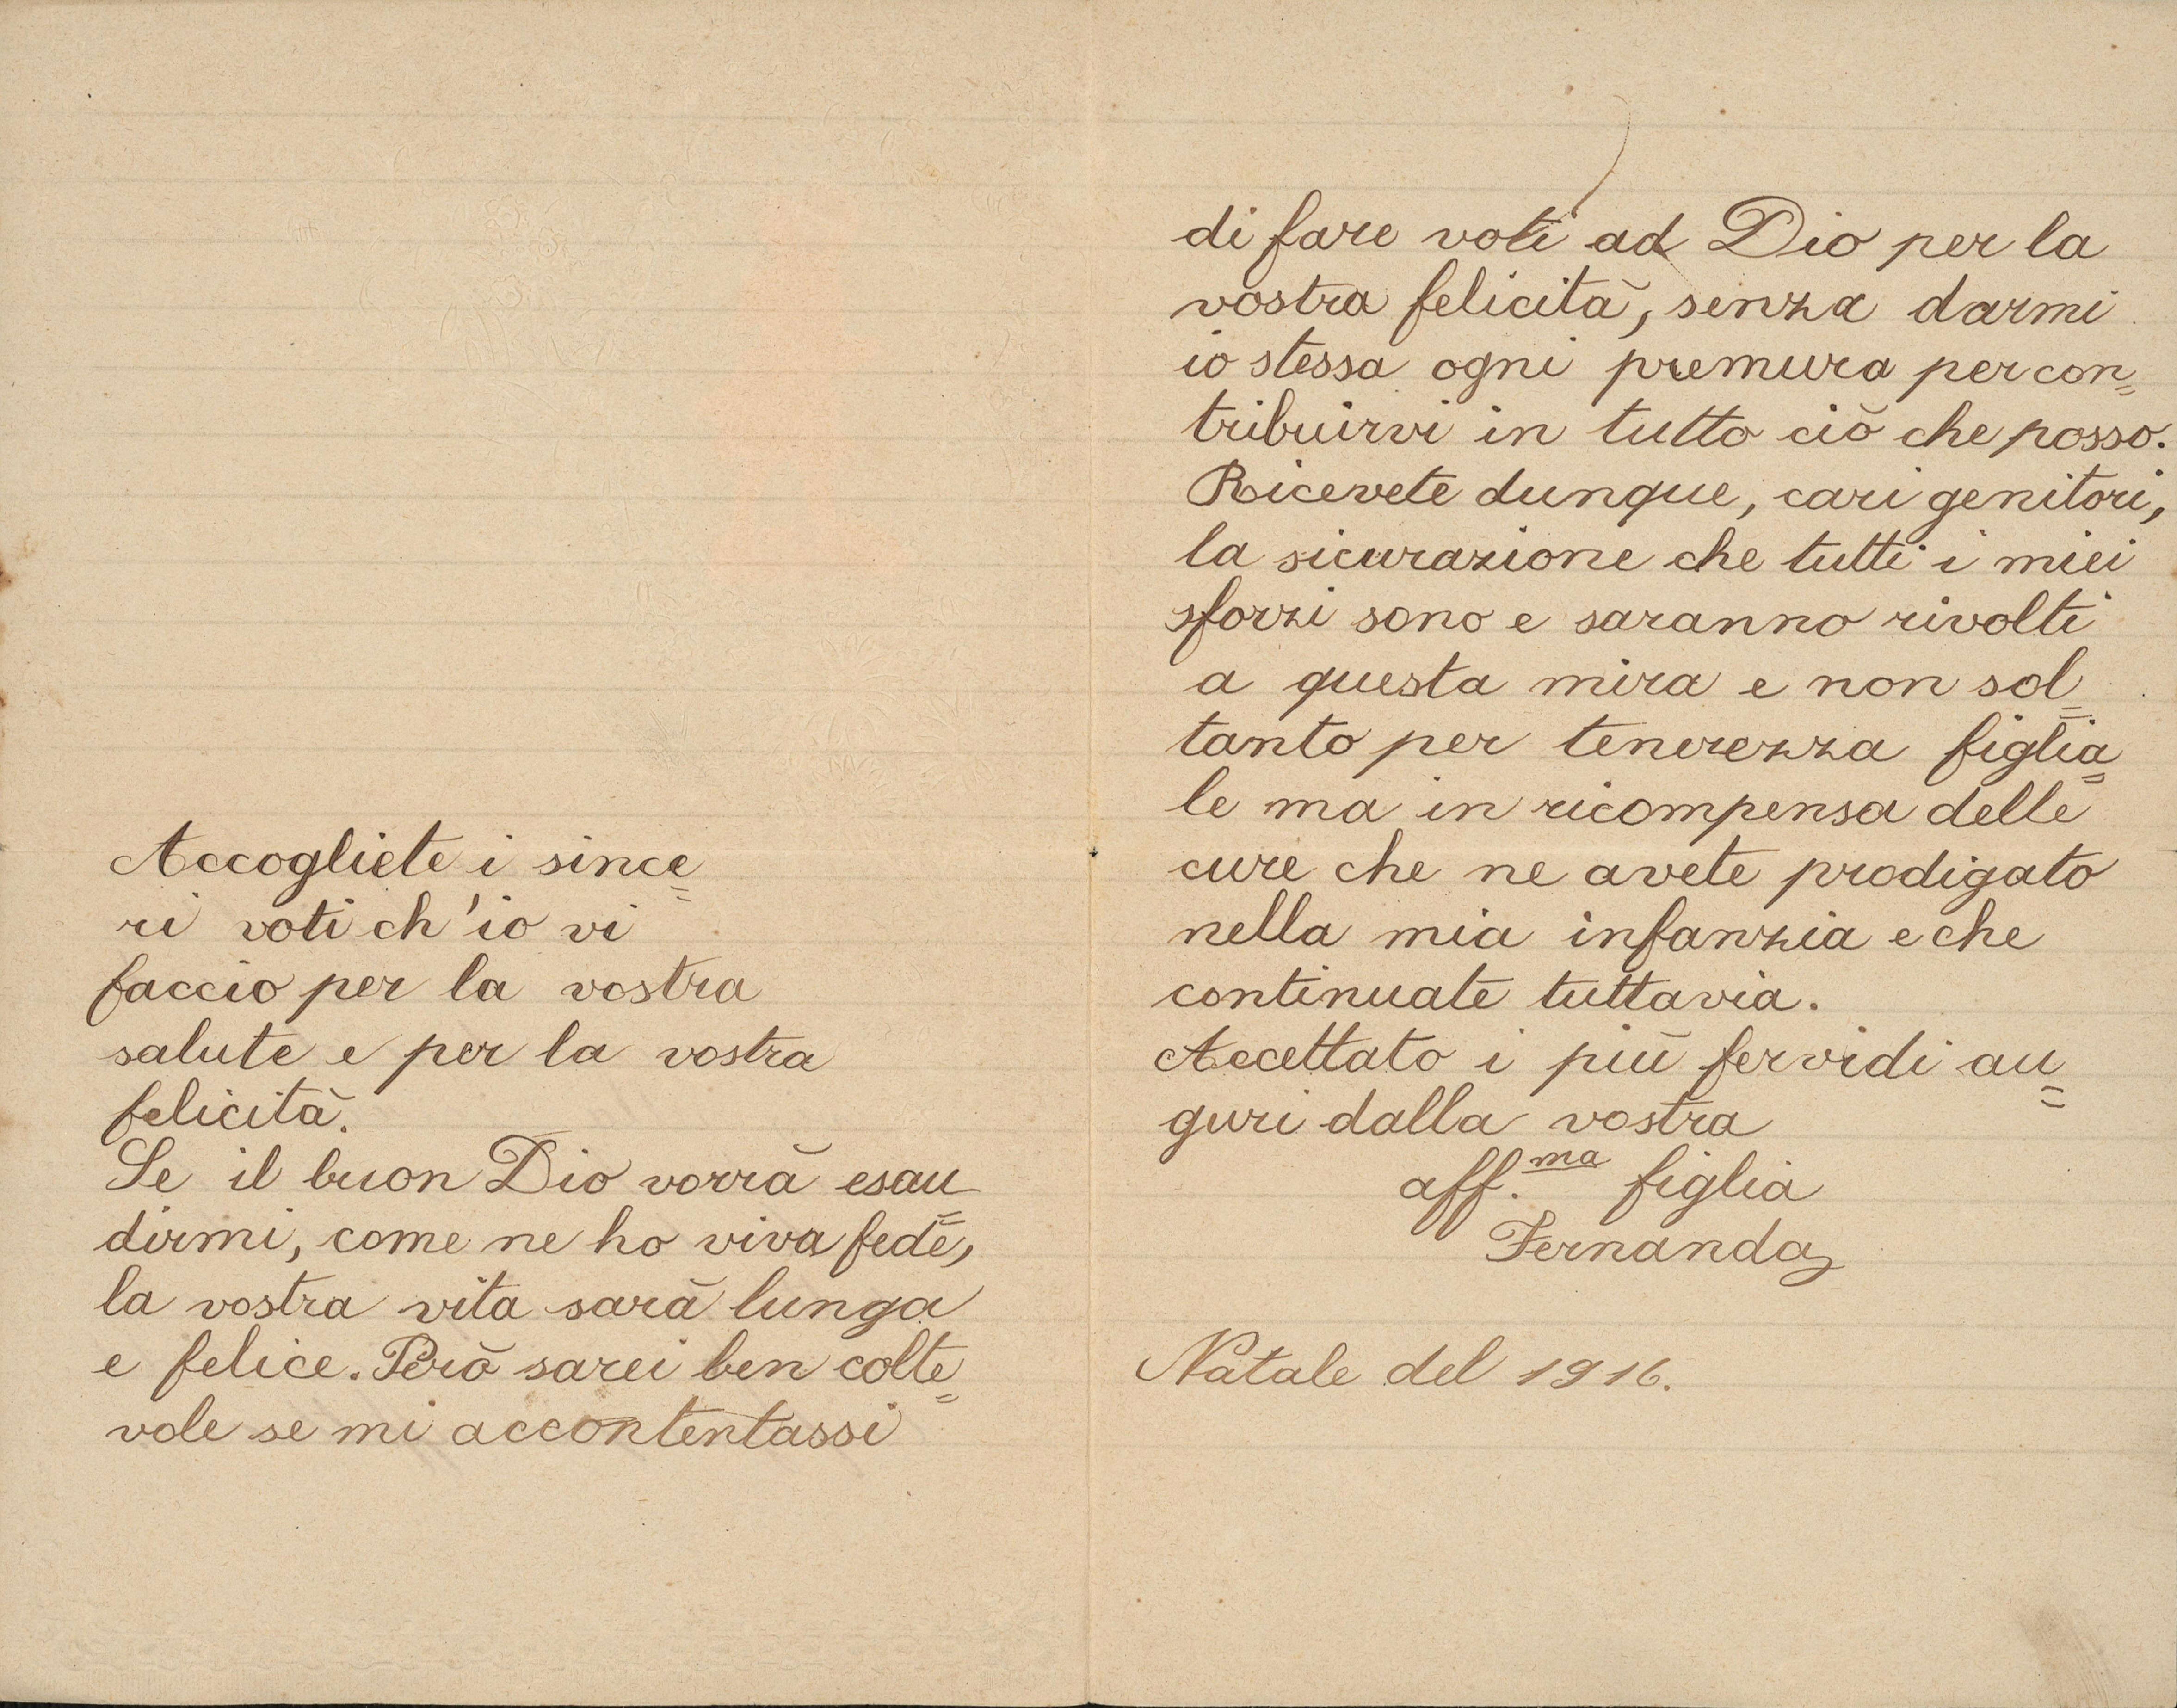 Accogliete i since=
ri voti ch'io vi
faccio per la vostra
salute e per la vostra
felicità.
Se il buon Dio vorrà esau=
dirmi, come ne ho viva fede,
la vostra vita sarà lunga
e felice. Però sarei ben colte=
vole se mi accontentassi
di fare voti ad Dio per la
vostra felicità, senza darmi
io stessa ogni premura per con=
tribuirvi in tutto ciò che posso.
Ricevete dunque, cari genitori,
la sicurazione che tutti i miei
sforzi sono e saranno rivolti
a questa mira e non sol=
tanto per tenerezza figlia=
le ma in ricompensa delle
cure che ne avete prodigato
nella mia infanzia e che
continuate tuttavia.
Accettato i più fervidi au=
guri dalla vostra
aff.ma figlia
Fernanda
Natale del 1916.